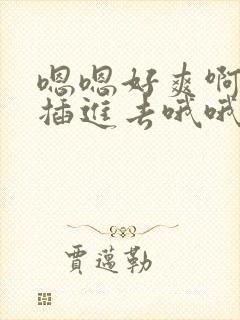 嗯嗯好爽啊
插进去哦哦
贾迈勒